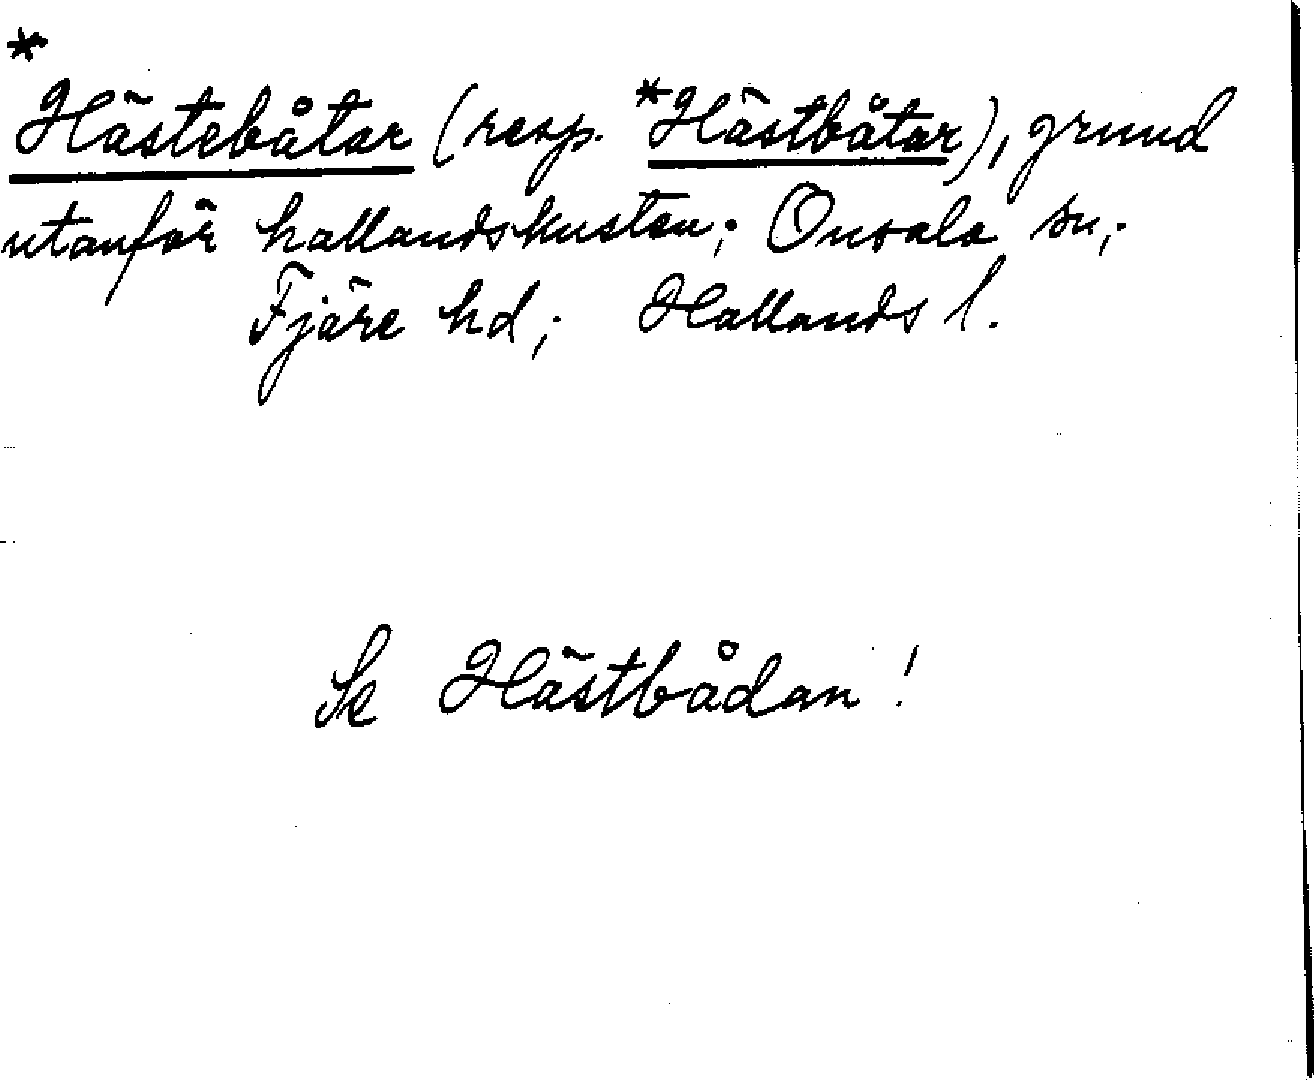 *
Hästebåtar (resp. *Hästbåtar), grund
utanför hallandskusten; Onsala sn;
Fjäre hd; Hallands l.
Se Hästbådan!